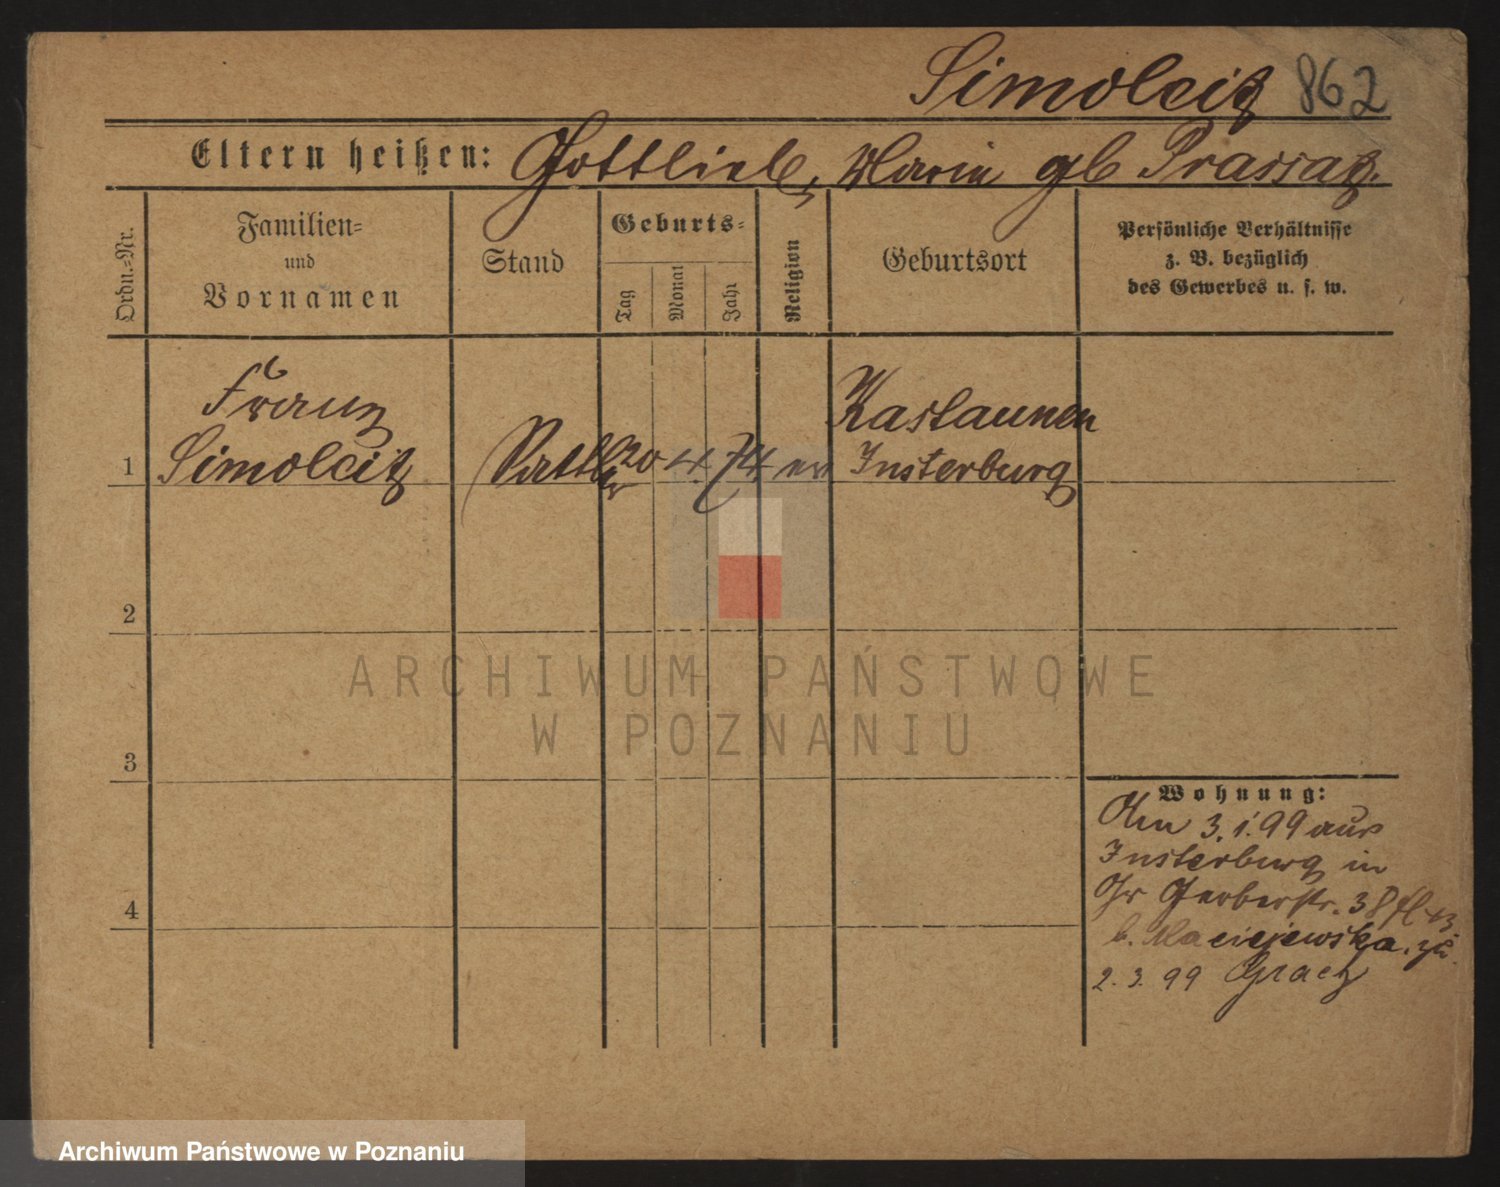 Simoleit 862
Eltern heißen: Gottlieb, Marie gb Prassat.
Ordn.-Nr.
Familien-
und
Vornamen
Stand
Geburts-
Tag
Monat
Jahr
Religion
Geburtsort
Persönliche Verhältnisse
z. B. bezüglich
des Gewerbes u. s. w.
1
Franz
Simoleit
Sattler
20 4. 74 ev
Insterburg
2
3
4
Wohnung:
3. 1. 99 aus
Insterburg in
Gr Gerberstr. 38
b. Maciejewska.
2. 3. 99 Graetz
ARCHIWUM PAŃSTWOWE
W POZNANIU
Archiwum Państwowe w Poznaniu